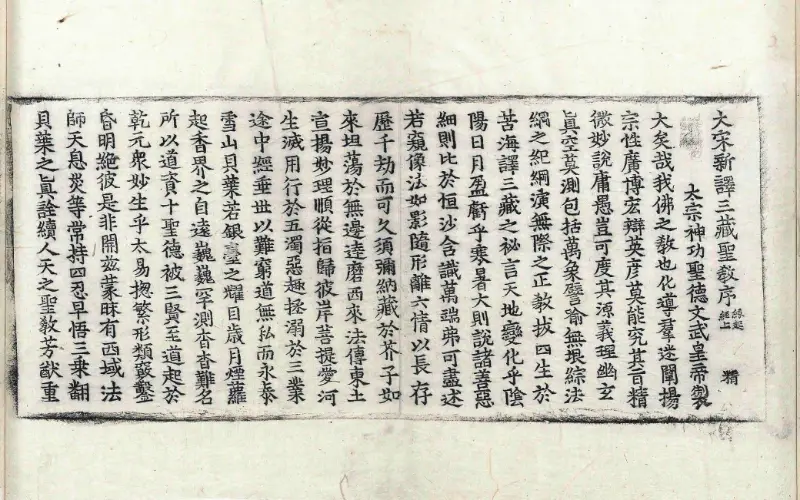 大宋新譯三藏聖教序
太宗神功聖德文武皇帝製 精
大矣哉我佛之教也化導羣迷闡揚
宗性廣博宏辯英彦莫能究其旨精
微妙說庸愚豈可度其源義理幽玄
真空莫測包括萬象譬喻無垠綜法
網之紀綱演無際之正教拔四生於
苦海譯三藏之祕言天地變化乎陰
陽日月盈虧乎寒暑大則說諸善惡
細則比於恒沙含識萬端弗可盡述
若窺像法如影隨形離六情以長存
歷千劫而可久須彌納藏於芥子如
來坦蕩於無邊達磨西來法傳東土
宣揚妙理順從指歸彼岸菩提愛河
生滅用行於五濁惡趣拯溺於三業
途中經垂世以難窮道無私而永泰
雪山貝葉若銀臺之耀目歲月煙蘿
起香界之自遠巍巍罕測杳杳難名
所以道資十聖德被三賢至道起於
乾元衆妙生乎太易揔繁形類竅鑿
昏明絶彼是非開兹蒙昧有西域法
師天息灾等常持四忍早悟三乘翻
貝葉之真詮續人天之聖教芳猷重